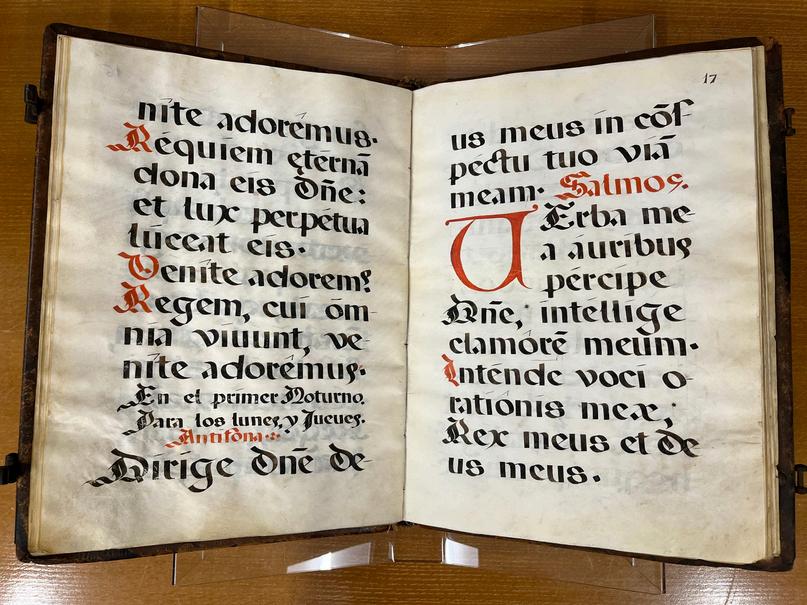 nite adorémus.
Réquiem ętérnā
dona eis Dn̄e:
et lux perpétua
lúceat eis.
Veníte adorem9
Regem, cui óm
nia viuunt, ve-
níte adorémus.
En el primer Noturno.
Para los lunes, y Jueues.
Antifona.
Dirige Dn̄e De-
17
us meus in cōſ
pectu tuo viā
meam. Salmos.
VErba me-
a áuribus
pércipe
Dn̄e, intéllige
clamórē meum.
Inténde voci o-
ratiónis meæ,
Rex meus et De
us meus.